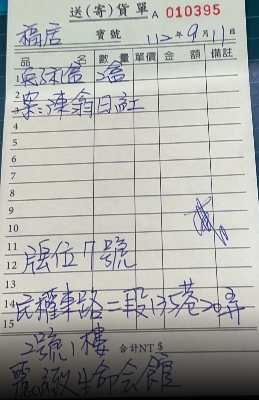 送(寄)貨單 A 010395
福居 寶號 112年9月11日
品名 數量 單價 金額 備註
1 2盒
2
3 案:陳翁日紅
4
5
6
7
8
9
10
11
12 版位7號
13
14 民權東路二段135巷20弄
15
2號1樓 合計NT$
生命會館